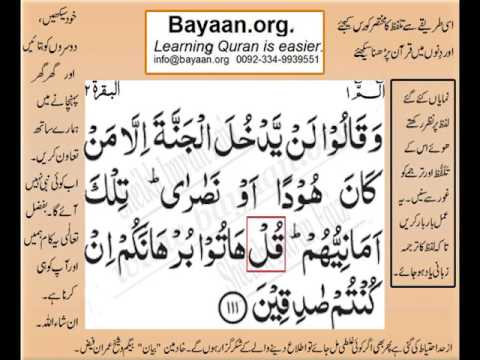 Bayaan.org.
Learning Quran is easier.
info@bayaan.org 0092-334-9939551
اسی طریقے سے تلفظ کا مختصر کورس کیجئے
اور دِنوں میں قرآن پڑھنا سیکھئے
خود سیکھیں،
دوسروں کو بتائیں
اور گھر گھر
پہنچانے میں
ہمارے ساتھ
تعاون کریں۔
اب کوئی نبی نہیں
آئے گا۔ بفضل
تعالٰی یہ کام ہمیں
اور آپ کو ہی
کرنا ہے۔
ان شاء اللہ۔
البقرة ٢
الٓمّٓ ١
وَقَالُوْا لَنْ يَّدْخُلَ الْجَنَّةَ اِلَّا مَنْ
كَانَ هُوْدًا اَوْ نَصٰرٰى ؕ تِلْكَ
اَمَانِيُّهُمْ ؕ قُلْ هَاتُوْا بُرْهَانَكُمْ اِنْ
كُنْتُمْ صٰدِقِيْنَ ﴿۱۱۱﴾
نمایاں کئے گئے
لفظ پر نظر رکھتے
ھوئے اس کے
تلفّظ اور ترجمے کو
غور سے سنیں۔ یہ
عمل بار بار کریں
تا کہ لفظ کا ترجمہ
زبانی یاد ہو جائے۔
از حد احتیاط کی گئی ہے پھر بھی اگر کوئی غلطی مل جائے تو اطلاع دینے والے کے شکر گزار ہوں گے۔ خادمین "بیان" بیگم و شیخ عمران فیض۔